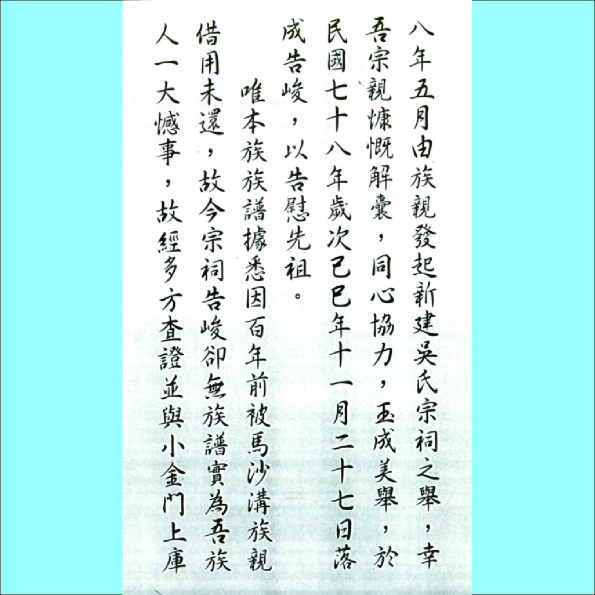 八年五月由族親發起新建吳氏宗祠之舉，幸
吾宗親慷慨解囊，同心協力，玉成美舉，於
民國七十八年歲次己巳年十一月二十七日落
成告峻，以告慰先祖。
唯本族族譜據悉因百年前被馬沙溝族親
借用未還，故今宗祠告峻卻無族譜實為吾族
人一大憾事，故經多方查證並與小金門上庫